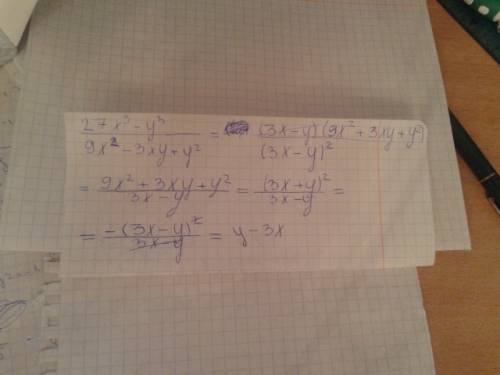 (27x³ - y³)/(9x² - 3xy + y²) = ((3x-y)(9x² + 3xy + y²))/((3x-y)²)
= (9x² + 3xy + y²)/(3x-y) = ((3x+y)²)/(3x-y) =
= (-(3x-y)²)/(3x-y) = y - 3x